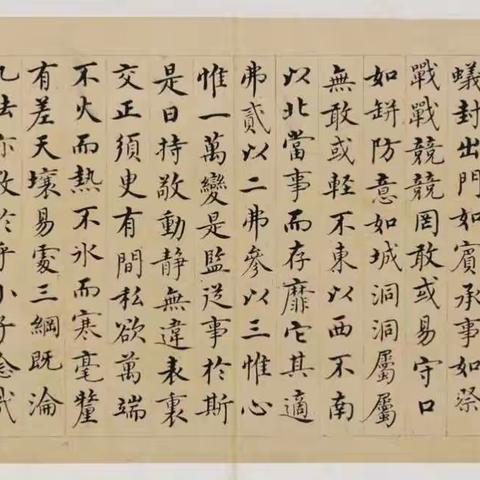 蟻封出門如賓承事如祭
戰戰兢兢罔敢或易守口
如缾防意如城洞洞屬屬
無敢或輕不東以西不南
以北當事而存靡它其適
弗貳以二弗參以三惟心
惟一萬變是監從事於斯
是曰持敬動靜無違表裏
交正須臾有間私欲萬端
不火而熱不氷而寒毫釐
有差天壤易處三綱既淪
九法亦斁於乎小子念哉